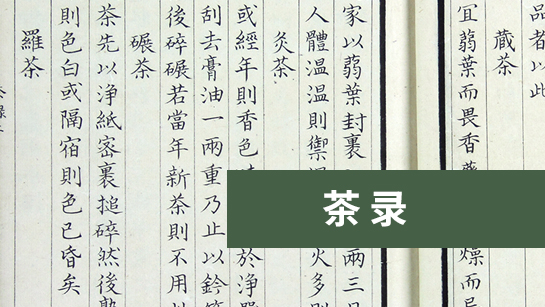 品者以此
藏茶
冝蒻葉而畏香
燥而忌
家以蒻葉封裹
兩三日
人體温温則禦
火多則
炙茶
或經年則香色
於淨
刮去膏油一兩重乃止以鈐
後碎碾若當年新茶則不用
碾茶
茶先以淨紙密裹搥碎然後熟
則色白或隔宿則色已昏矣
羅茶
茶录